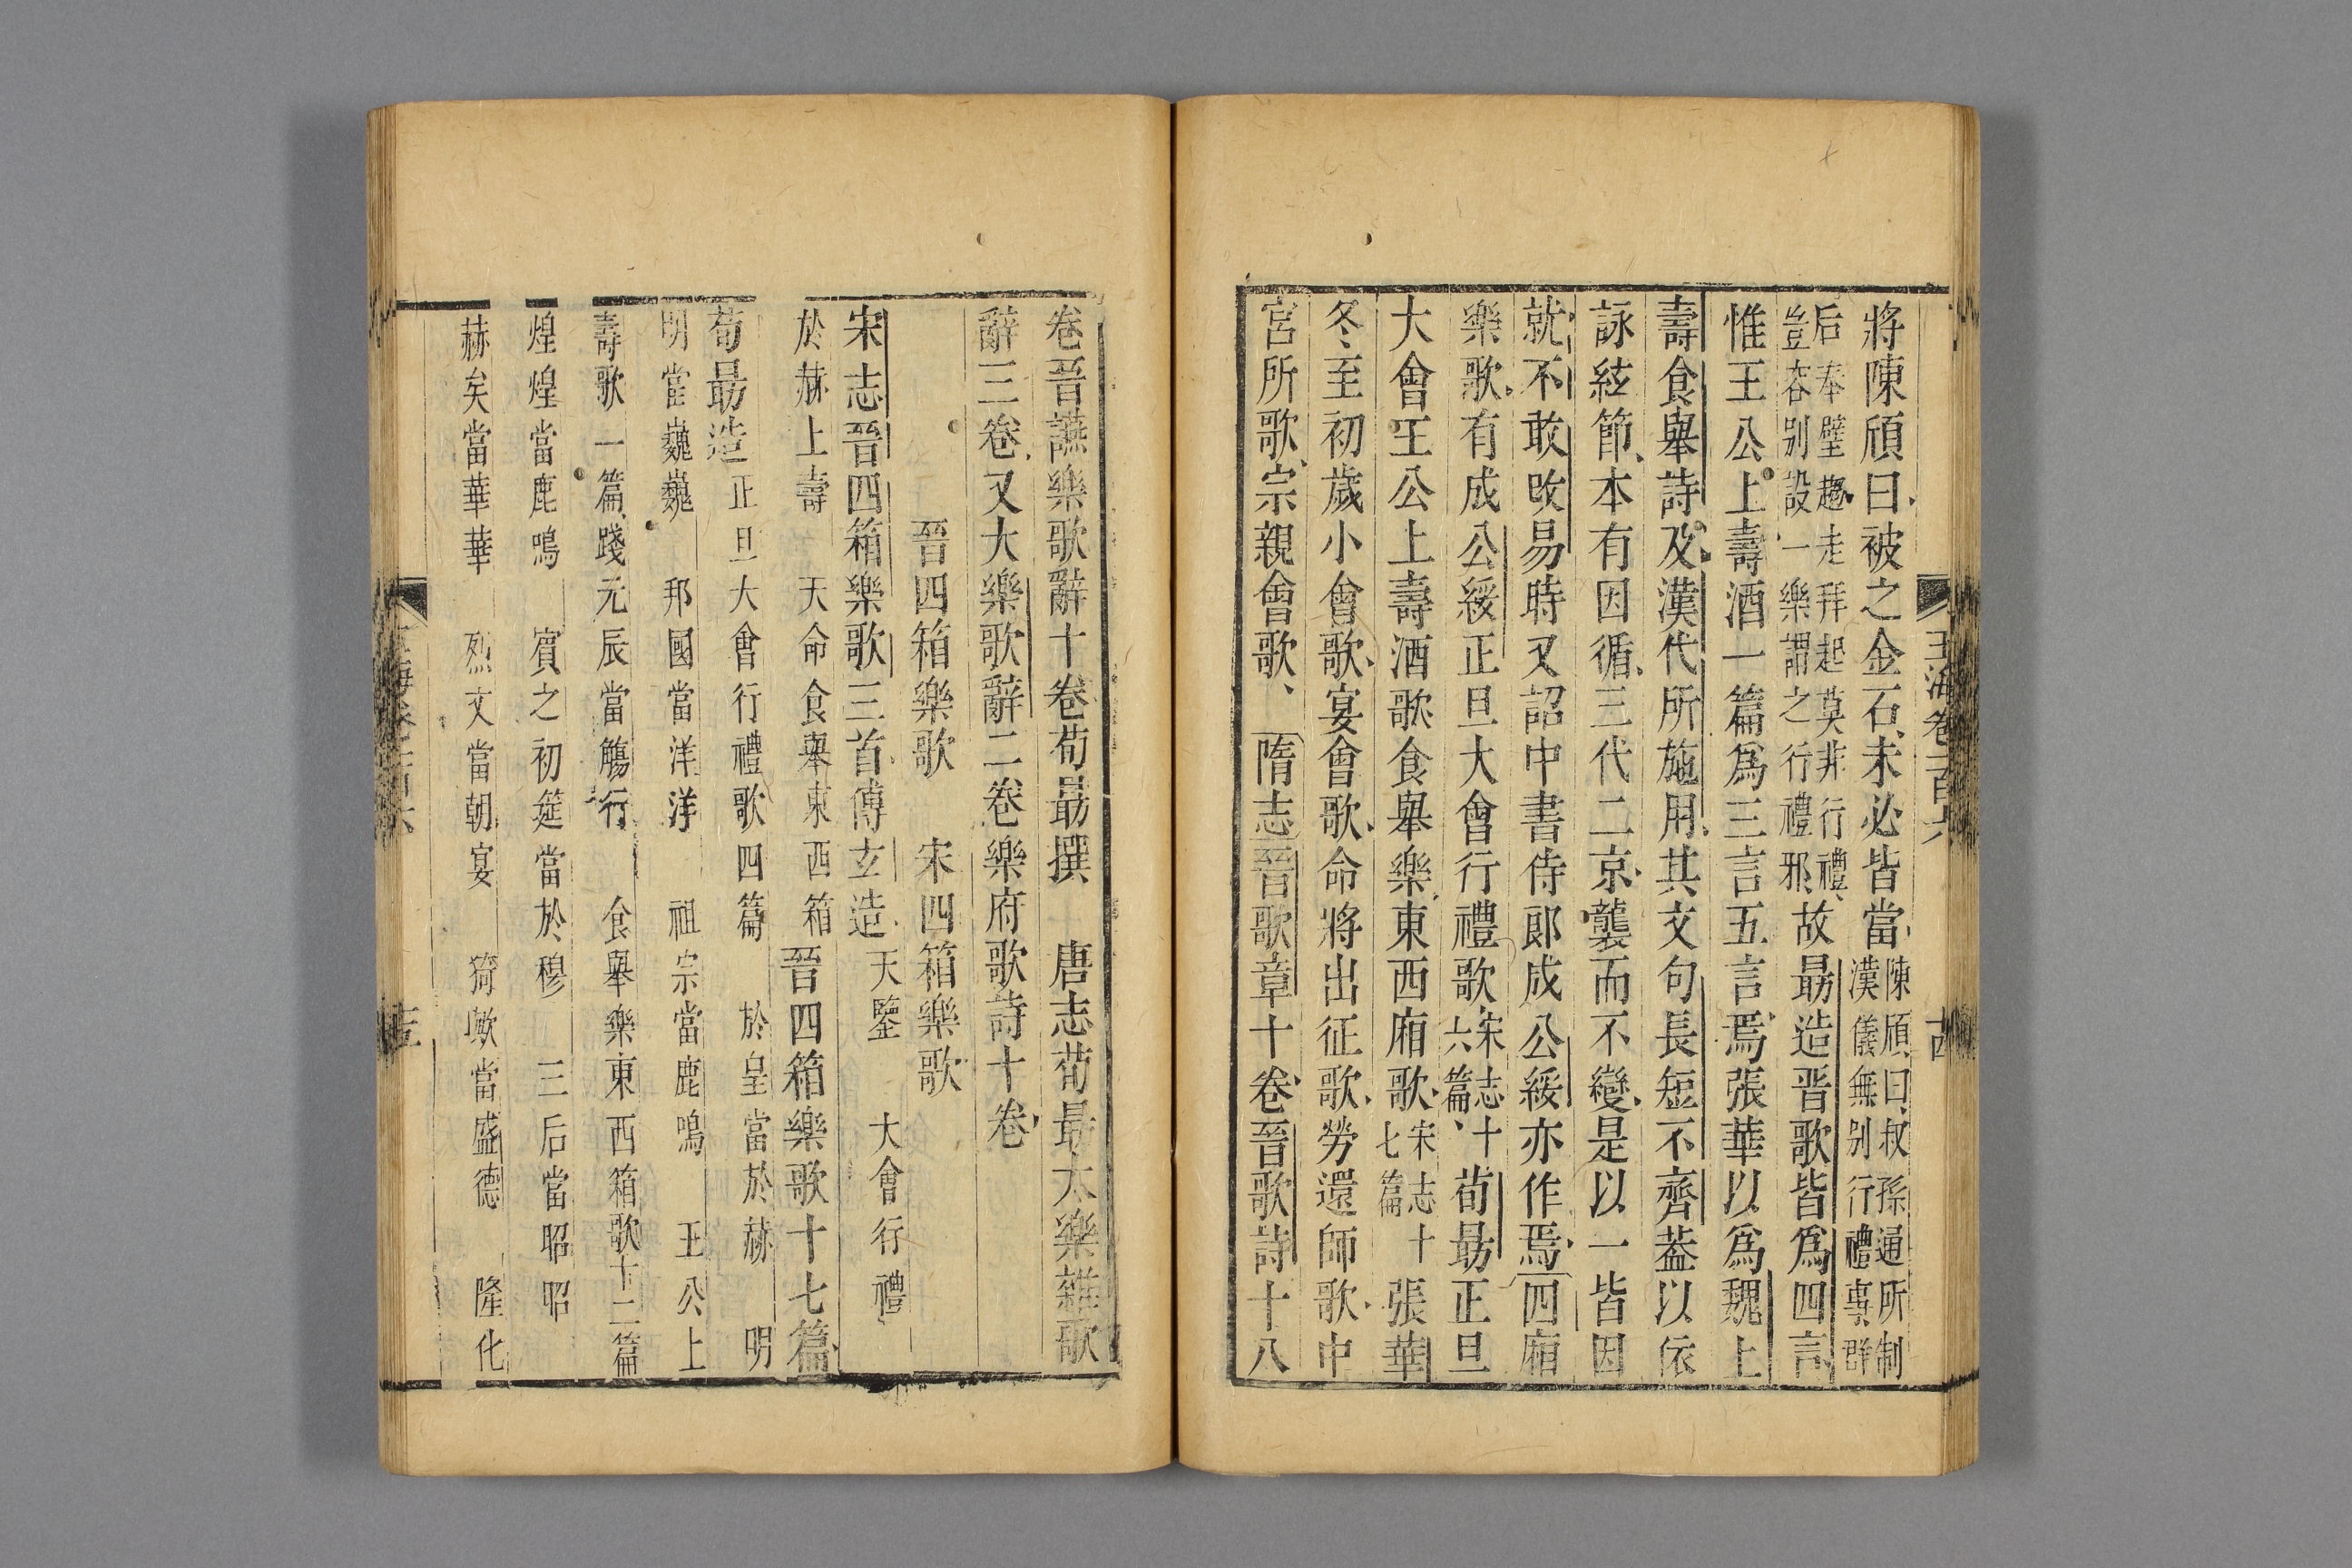 玉海卷一百六
十四
將陳頎曰被之金石未必皆當陳頎曰叔孫通所制漢儀無别行禮專群
后奉璧趨走拜起莫非行禮豈容别設一樂謂之行禮邪故勗造晉歌皆爲四言
惟王公上壽酒一篇爲三言五言焉張華以爲魏上
壽食舉詩及漢代所施用其文句長短不齊葢以依
詠絃節本有因循三代二京襲而不變是以一皆因
就不敢改易時又詔中書侍郎成公綏亦作焉四廂
樂歌有成公綏正旦大會行禮歌宋志十六篇荀勗正旦
大會王公上壽酒歌食舉樂東西廂歌宋志十七篇張華
冬至初歲小會歌宴會歌命將出征歌勞還師歌中
宮所歌宗親會歌隋志晉歌章十卷晉歌詩十八
卷晉讌樂歌辭十卷荀勗撰 唐志荀勗太樂雜歌
辭三卷又大樂歌辭二卷樂府歌詩十卷
晉四箱樂歌 宋四箱樂歌
宋志晉四箱樂歌三首傅玄造天鑒 大會行禮
於赫上壽 天命食舉東西箱晉四箱樂歌十七篇
荀勗造正旦大會行禮歌四篇 於皇當於赫 明
明當巍巍 邦國當洋洋 祖宗當鹿鳴 王公上
壽歌一篇踐元辰當觴行 食舉樂東西箱歌十二篇
煌煌當鹿鳴 賓之初筵當於穆 三后當昭昭
赫矣當華華 烈文當朝宴 猗歟當盛德 隆化
十五